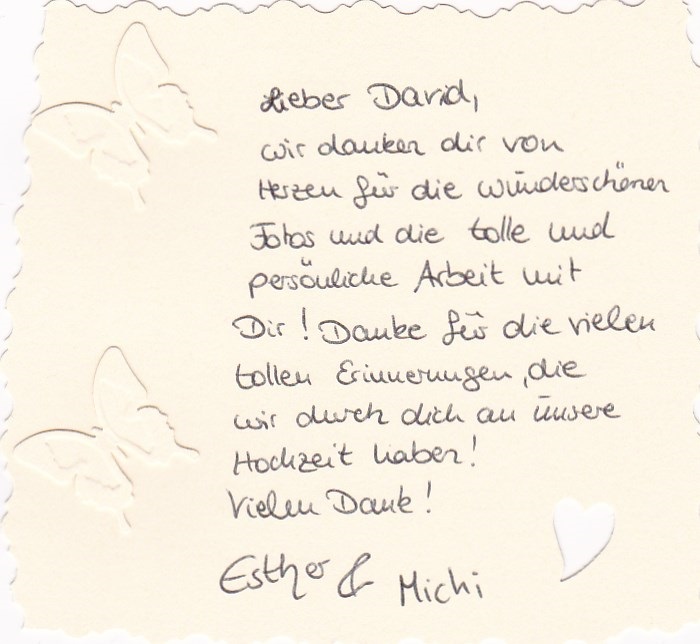 Lieber David,
wir danken dir von
Herzen für die wunderschönen
Fotos und die tolle und
persönliche Arbeit mit
Dir! Danke für die vielen
tollen Erinnerungen, die
wir durch dich an unsere
Hochzeit haben!
Vielen Dank!
Esther & Michi